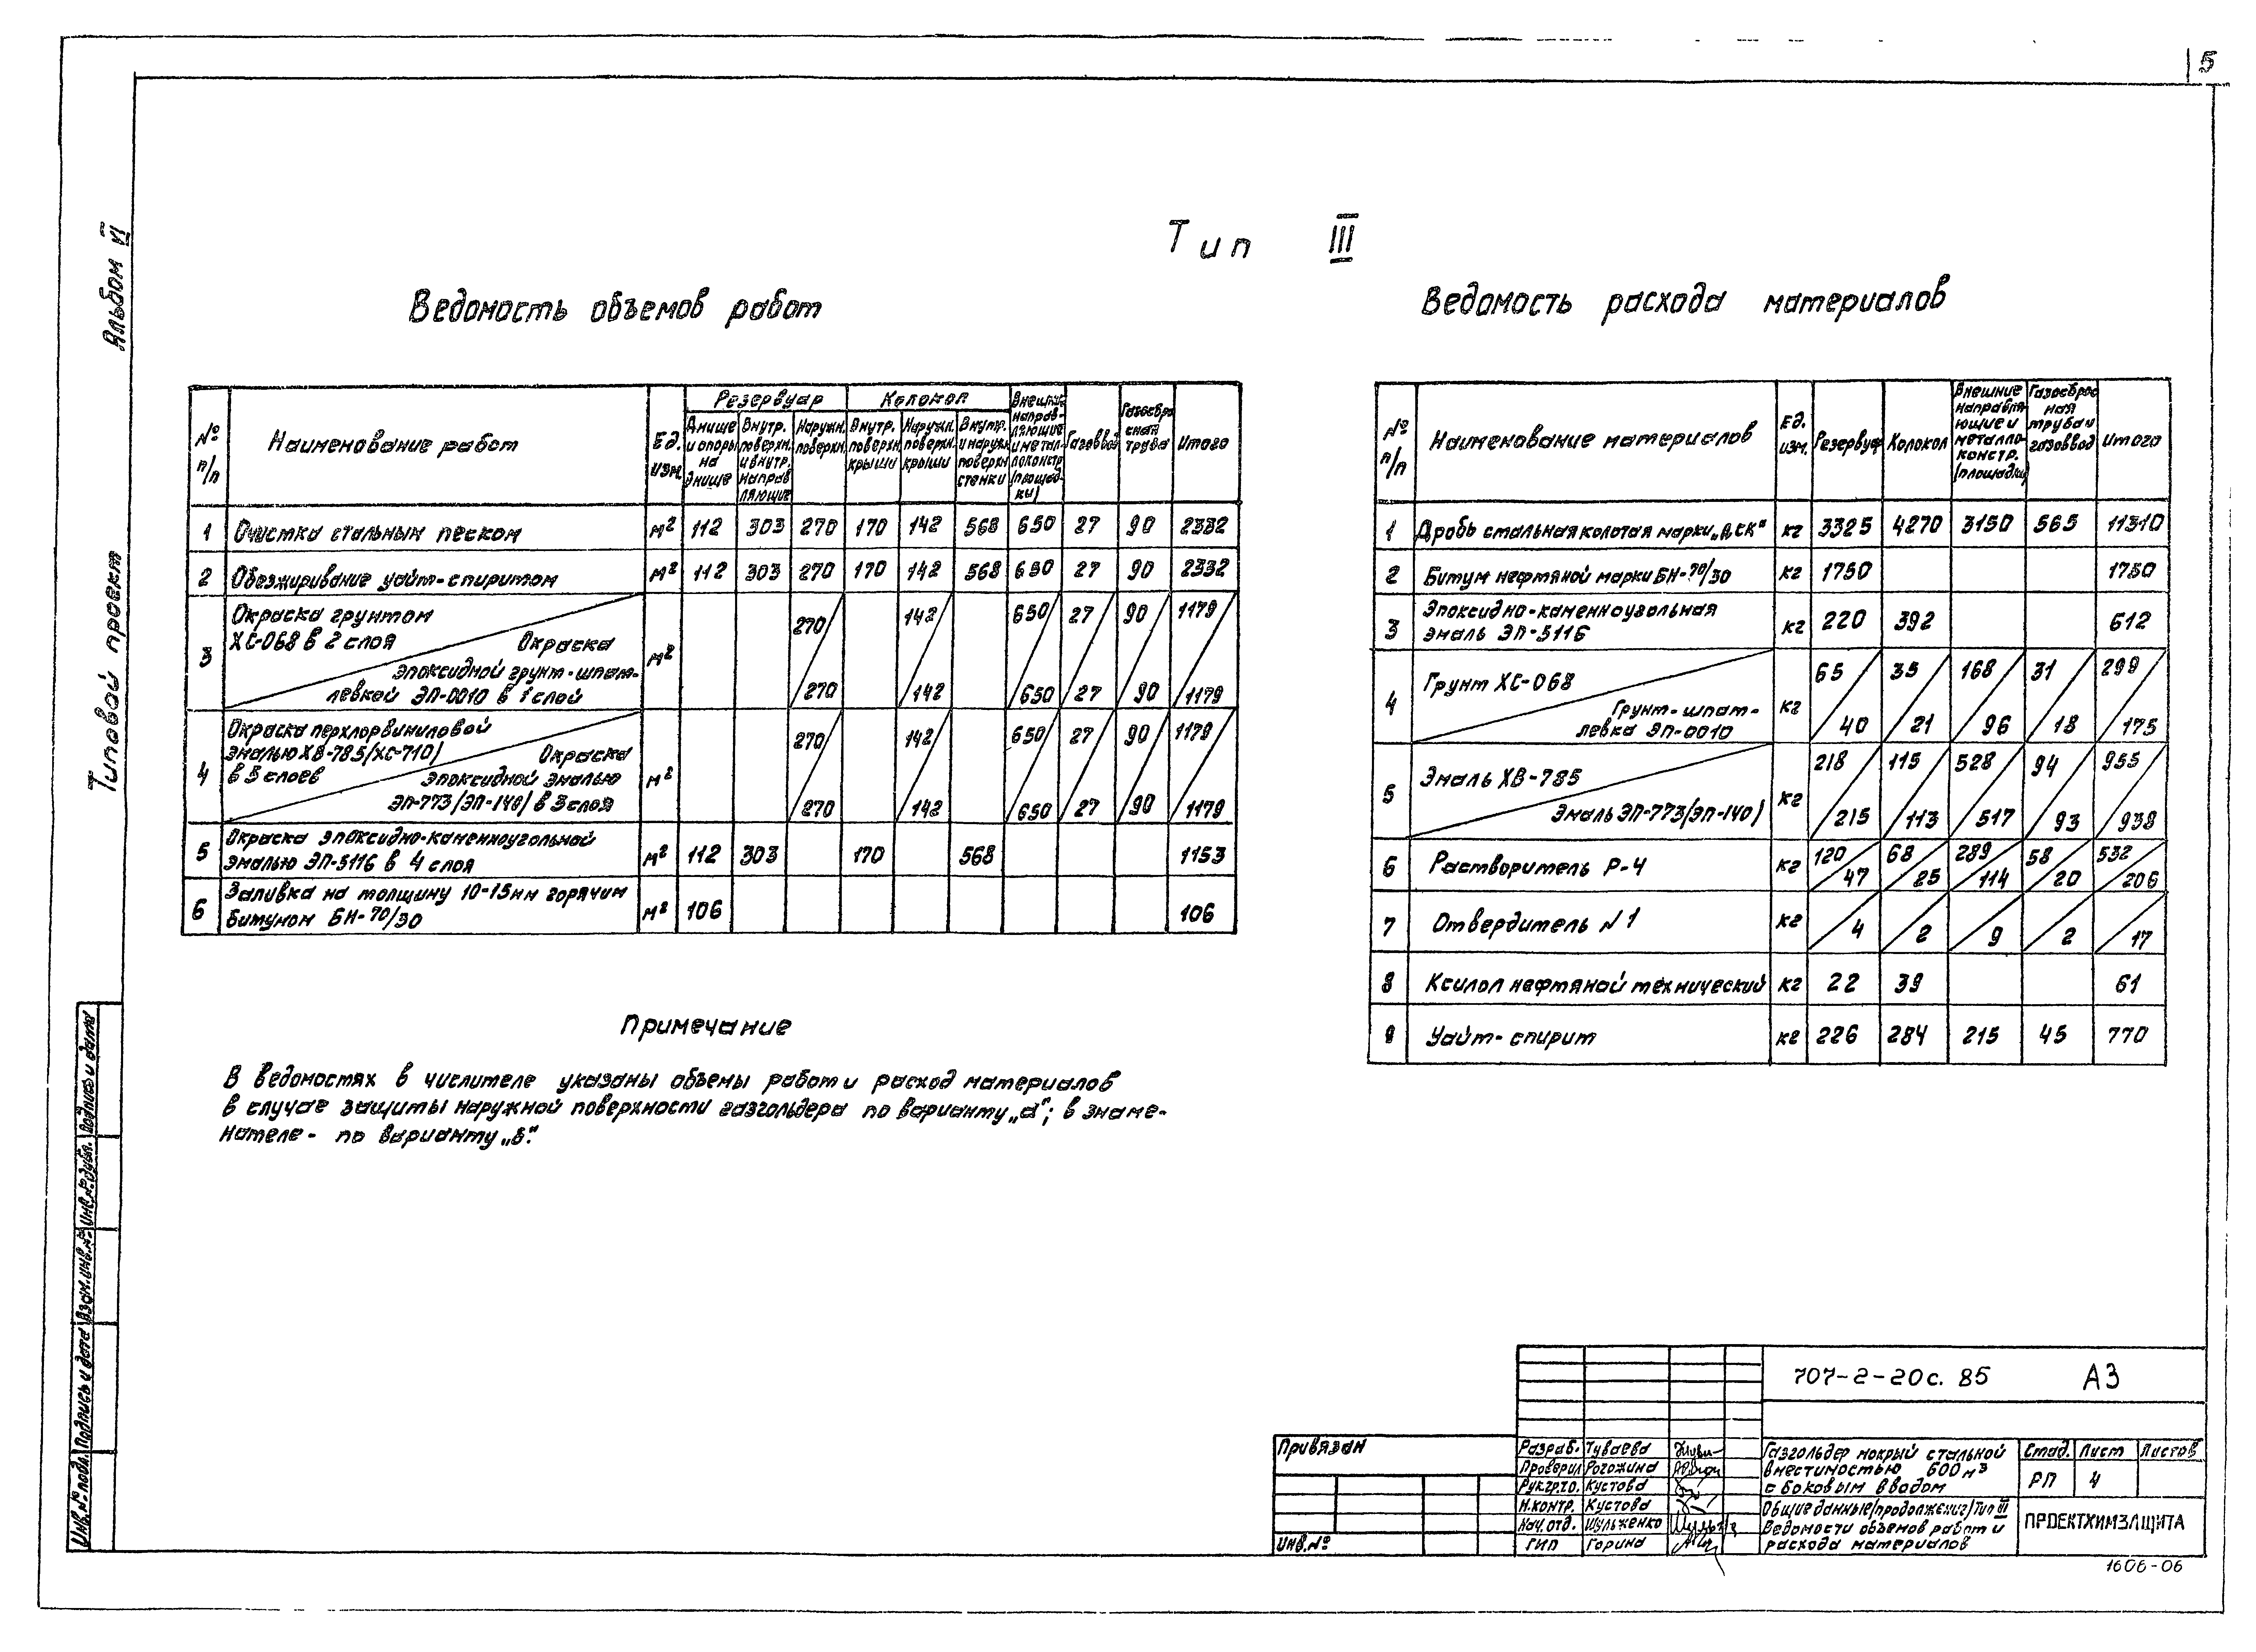 5
Альбом VI
Типовой проект
Тип III
Ведомость объемов работ
№ п/п
Наименование работ
Ед. изм.
Резервуар
Колокол
Днище и опоры на днище
Внутр. поверхн. и внутр. направляющие
Наружн. поверхн.
Внутр. поверхн. крыши
Наружн. поверхн. крыши
Внутр. и наружн. поверхн. стенки
Внешние направляющие и металлоконстр. (площадки)
Газоввод
Газосбросная труба
Итого
1 Очистка стальным песком м² 112 303 270 170 142 568 650 27 90 2332
2 Обезжиривание уайт-спиритом м² 112 303 270 170 142 568 650 27 90 2332
3 Окраска грунтом
ХС-068 в 2 слоя
Окраска
эпоксидной грунт-шпат-
левкой ЭП-0010 в 1 слой
м² 270/270 142/142 650/650 27/27 90/90 1179/1179
4 Окраска перхлорвиниловой
эмалью ХВ-785 (ХС-710)
в 5 слоев
Окраска
эпоксидной эмалью
ЭП-773 (ЭП-140) в 3 слоя
м² 270/270 142/142 650/650 27/27 90/90 1179/1179
5 Окраска эпоксидно-каменноугольной
эмалью ЭП-5116 в 4 слоя м² 112 303 170 568 1153
6 Заливка на толщину 10-15мм горячим
битумом БН-70/30 м² 106 106
Ведомость расхода материалов
№ п/п
Наименование материалов
Ед. изм.
Резервуар
Колокол
Внешние направляющие и металлоконстр. (площадки)
Газосбросная труба и газоввод
Итого
1 Дробь стальная колотая марки „ДСК" кг 3325 4270 3150 565 11310
2 Битум нефтяной марки БН-70/30 кг 1750 1750
3 Эпоксидно-каменноугольная
эмаль ЭП-5116 кг 220 392 612
4 Грунт ХС-068
Грунт-шпат-
левка ЭП-0010
кг 65/40 35/21 168/96 31/18 299/175
5 Эмаль ХВ-785
Эмаль ЭП-773 (ЭП-140)
кг 218/215 115/113 528/517 94/93 955/938
6 Растворитель Р-4 кг 120/47 68/25 289/114 58/20 532/206
7 Отвердитель №1 кг /4 /2 /9 /2 /17
8 Ксилол нефтяной технический кг 22 39 61
9 Уайт-спирит кг 226 284 215 45 770
Примечание
В ведомостях в числителе указаны объемы работ и расход материалов
в случае защиты наружной поверхности газгольдера по варианту „а"; в знаме-
нателе - по варианту „б".
Инв.№ подл. Подпись и дата Взам.инв.№ Инв.№ дубл. Подпись и дата
Привязан
Инв.№
707-2-20с.85 А3
Разраб. Чуваева
Проверил Рогожина
Рук.гр.то. Кустова
Н.контр. Кустова
Нач.отд. Шульженко
ГИП Горина
Газгольдер мокрый стальной
вместимостью 600 м³
с боковым вводом
Стад. Лист Листов
РП 4
Общие данные (продолжение) Тип III
Ведомости объемов работ и
расхода материалов
ПРОЕКТХИМЗАЩИТА
1606-06